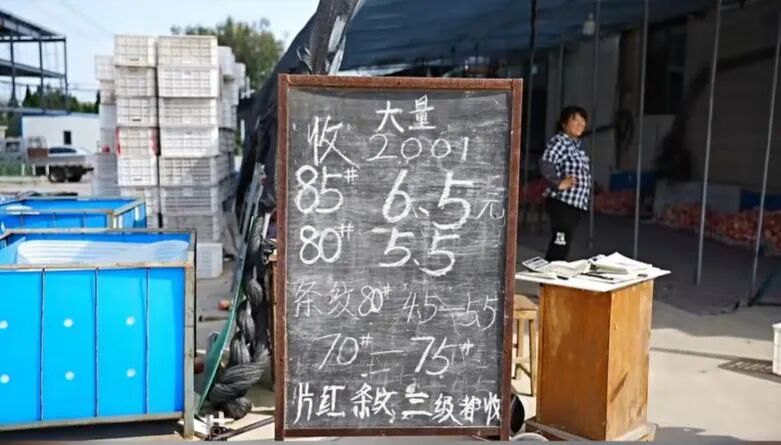 大量
收 2001
85# 6.5元
80# 5.5
条纹80# 4.5—5.5
70#—75#
片红 条纹 三级都收